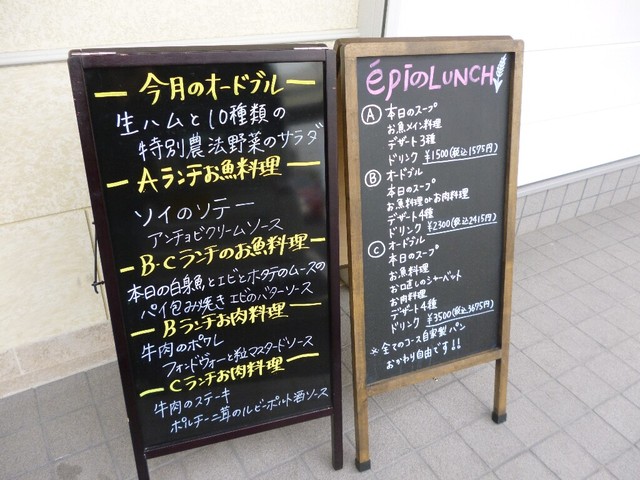 今月のオードブル
生ハムと10種類の
特別農法野菜のサラダ
Aランチお魚料理
ソイのソテー
アンチョビクリームソース
B・Cランチのお魚料理
本日の白身魚とエビとホタテのムースの
パイ包み焼きエビのバターソース
Bランチお肉料理
牛肉のポワレ
フォンドヴォーと粒マスタードソース
Cランチお肉料理
牛肉のステーキ
ポルチーニ茸のルビーポルト酒ソース
épiのLUNCH
A 本日のスープ
お魚メイン料理
デザート3種
ドリンク ¥1500(税込1575円)
B オードブル
本日のスープ
お魚料理orお肉料理
デザート4種
ドリンク ¥2300(税込2415円)
C オードブル
本日のスープ
お魚料理
お口直しのシャーベット
お肉料理
デザート4種
ドリンク ¥3500(税込3675円)
※全てのコース自家製パン
おかわり自由です!!